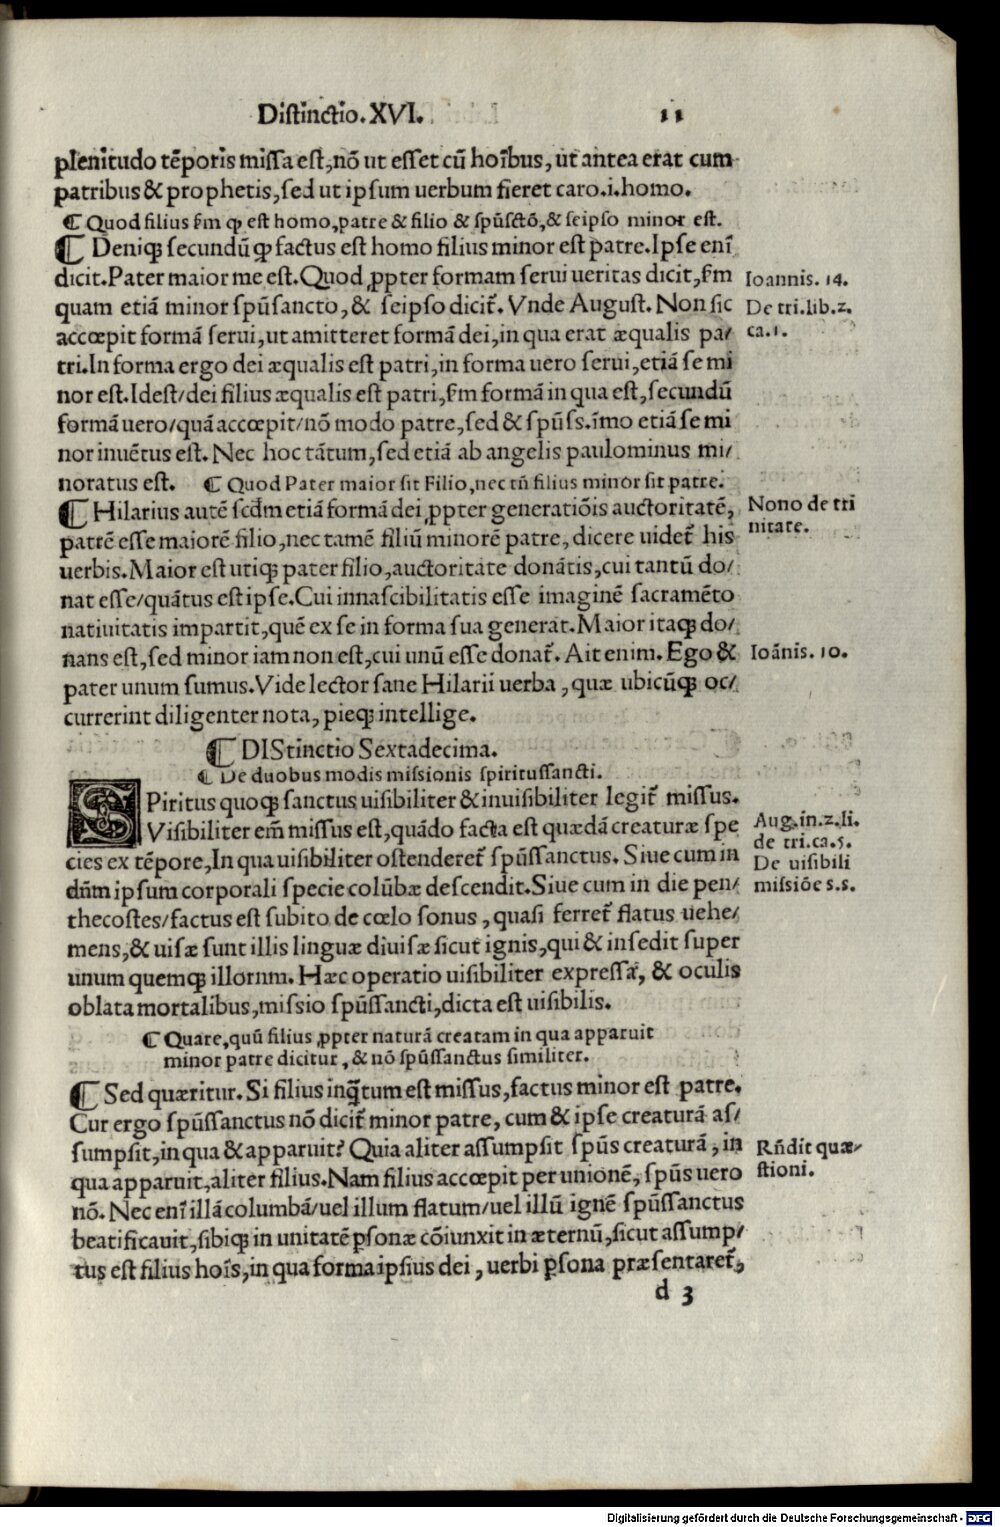 Distinctio.XVI. 11
plenitudo tẽporis missa est,nõ ut esset cũ hoĩbus,ut antea erat cum
patribus & prophetis,sed ut ipsum uerbum fieret caro.i.homo.
¶ Quod filius s̃m ꝙ est homo,patre & filio & spũsctõ,& seipso minor est.
¶ Deniqꝫ secundũ ꝙ factus est homo filius minor est patre.Ipse enĩ
dicit.Pater maior me est.Quod ꝓpter formam serui ueritas dicit,s̃m
Ioannis. 14.
quam etiã minor spũsancto,& seipso dicit̃. Vnde August. Non sic
De tri.lib.2.
accœpit formã serui,ut amitteret formã dei,in qua erat æqualis pa/
ca.1.
tri.In forma ergo dei æqualis est patri,in forma uero serui,etiã se mi
nor est.Idest/dei filius æqualis est patri,s̃m formã in qua est,secundũ
formã uero/quã accœpit/nõ modo patre,sed & spũss.ĩmo etiã se mi
nor inuẽtus est. Nec hoc tãtum,sed etiã ab angelis paulominus mi/
noratus est. ¶ Quod Pater maior sit Filio,nec tñ filius minor sit patre.
¶ Hilarius autẽ scd̃m etiã formã dei ꝓpter generatiõis auctoritatẽ,
Nono de tri
patrẽ esse maiorẽ filio,nec tamẽ filiũ minorẽ patre,dicere uidet̃ his
nitate.
uerbis.Maior est utiqꝫ pater filio,auctoritate donãtis,cui tantũ do/
nat esse/quãtus est ipse.Cui innascibilitatis esse imaginẽ sacramẽto
natiuitatis impartit,quẽ ex se in forma sua generat.Maior itaqꝫ do/
nans est,sed minor iam non est,cui unũ esse donat̃. Ait enim. Ego &
Ioãnis. 10.
pater unum sumus.Vide lector sane Hilarii uerba ,quæ ubicũqꝫ oc/
currerint diligenter nota,pieqꝫ intellige.
¶ DIStinctio Sextadecima.
¶ De duobus modis missionis spiritussancti.
SPiritus quoqꝫ sanctus uisibiliter & inuisibiliter legit̃ missus.
Visibiliter em̃ missus est,quãdo facta est quædã creaturæ spe
Aug.in.2.li.
de tri.ca.5.
cies ex tẽpore,In qua uisibiliter ostenderet̃ spũssanctus. Siue cum in
De uisibili
dñm ipsum corporali specie colũbæ descendit.Siue cum in die pen/
missiõe s.s.
thecostes/factus est subito de cœlo sonus ,quasi ferret̃ flatus uehe/
mens,& uisæ sunt illis linguæ diuisæ sicut ignis,qui & insedit super
unum quemqꝫ illornm. Hæc operatio uisibiliter expressa, & oculis
oblata mortalibus,missio spũssancti,dicta est uisibilis.
¶ Quare,quũ filius ꝓpter naturã creatam in qua apparuit
minor patre dicitur ,& nõ spũssanctus similiter.
¶ Sed quæritur.Si filius inq̃tum est missus,factus minor est patre.
Cur ergo spũssanctus nõ dicit̃ minor patre, cum & ipse creaturã as/
sumpsit,in qua & apparuit? Quia aliter assumpsit spũs creaturã ,in
Rñdit quæ-
qua apparuit,aliter filius. Nam filius accœpit per unionẽ, spũs uero
stioni.
nõ. Nec enĩ illã columbã/uel illum flatum/uel illũ ignẽ spũssanctus
beatificauit,sibiqꝫ in unitatẽ ꝑsonæ cõiunxit in æternũ,sicut assump/
tus est filius hoĩs,in qua forma ipsius dei ,uerbi ꝑsona præsentaret̃,
d 3
Digitalisierung gefördert durch die Deutsche Forschungsgemeinschaft - DFG